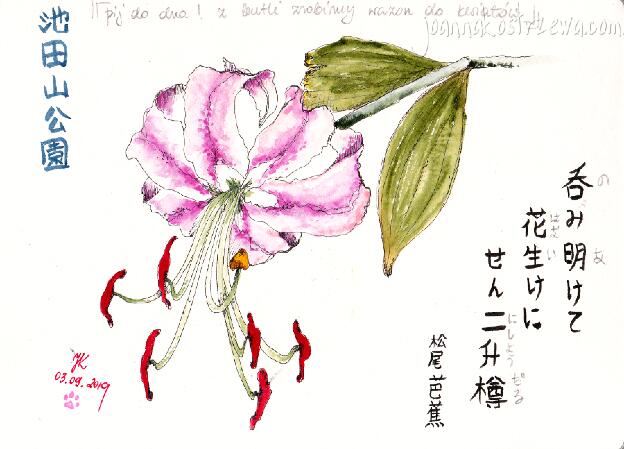 pij do dna! z butli zrobimy wazon do kwiatów!
joannak.ostrzewa.com
池田山公園
呑み明けて
の あ
花生けに
はない
せん二升樽
にしょうだる
松尾芭蕉
JK
03.09.2019